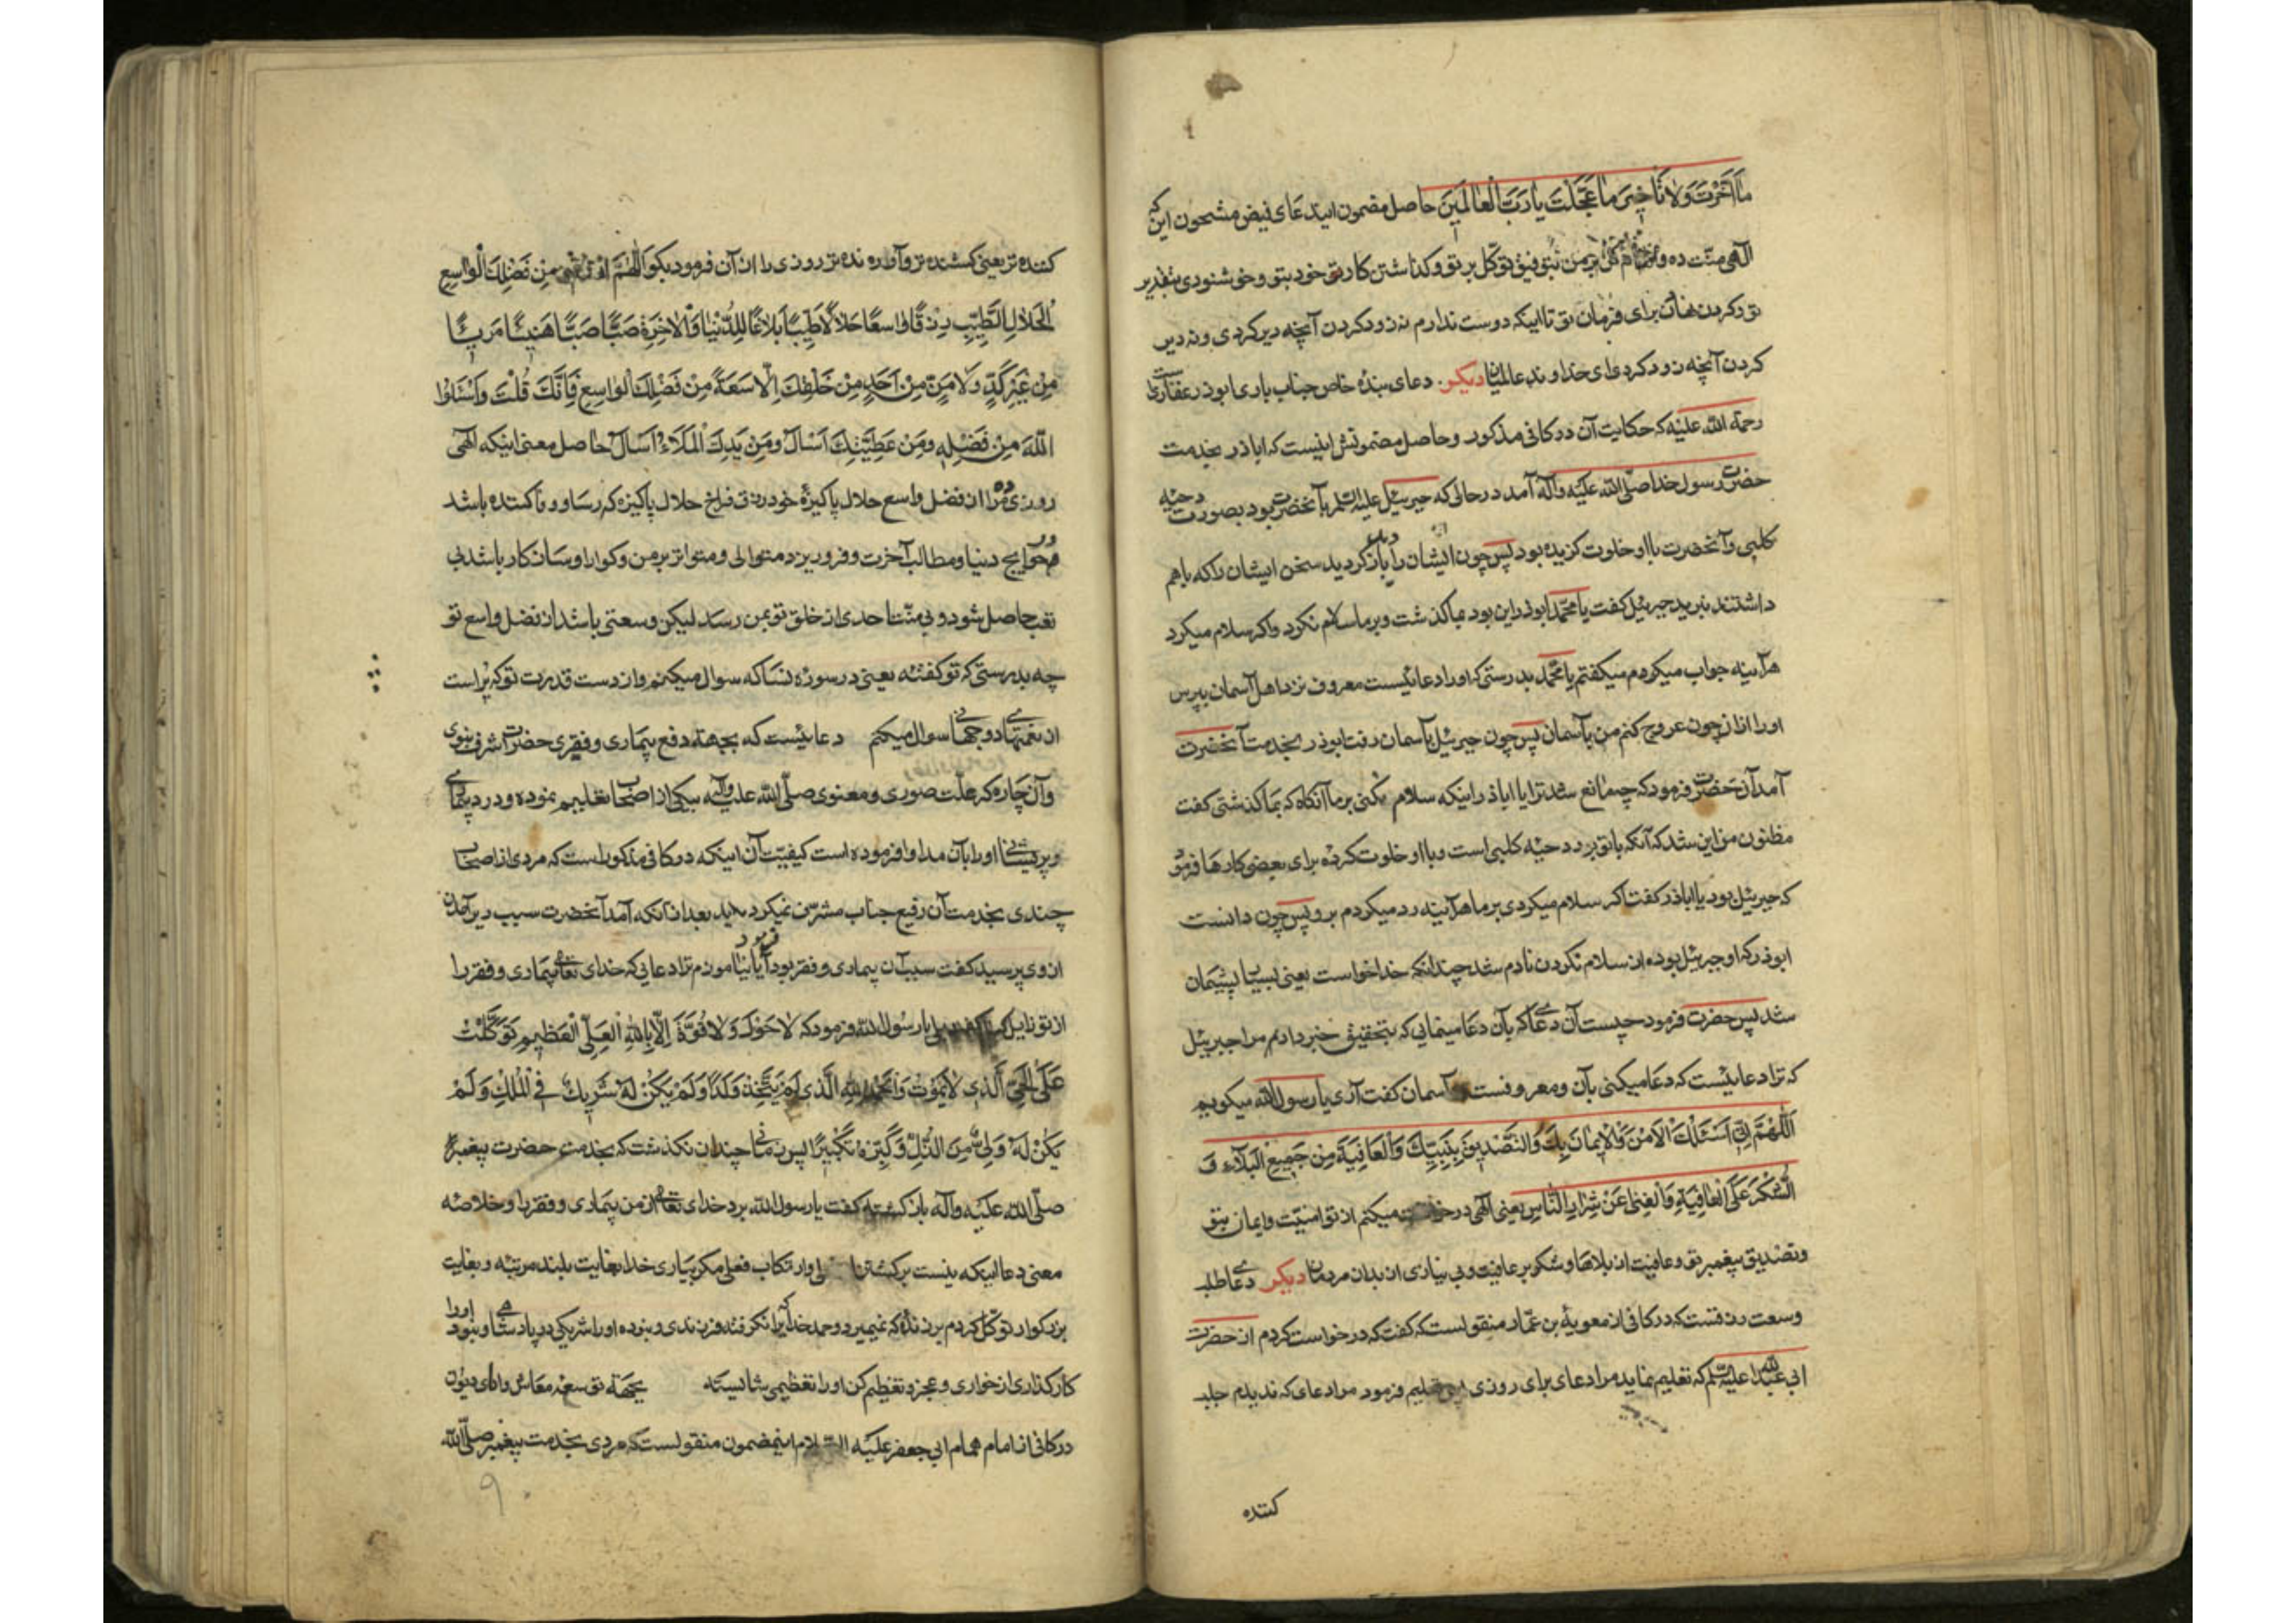 ما اَخَّرْتَ وَلا تَأخیرَ ما عَجَّلْتَ یا رَبَّ الْعالَمینَ حاصل مضمون این دعای فیض مشحون این که
الهی منّت ده بر من بتوفیق توکّل بر تو و کذاشتن کار خود بتو و خوشنودی بتقدیر
تو و کردن نهادن برای فرمان تو تا اینکه دوست ندارم نه زود کردن آنچه دیر کردی و نه دیر
کردن آنچه زود کردی ای خداوند عالمیان دیکر دعای بنده خاص جناب باری ابوذر غفاری است
رحمة الله علیه که حکایت آن در کافی مذکور و حاصل مضمونش اینست که اباذر بخدمت
حضرت رسول خدا صلّی الله علیه وآله آمد در حالی که جبرئیل علیه السلم با آنحضرت بود بصورت دحیه
کلبی و آنحضرت با او خلوت کزیده بود پس چون ایشان را دید باز کردید سخن ایشان را که باهم
داشتند نبرید جبرئیل کفت یا محمّد ابوذر این بود بما کذشت و بر ما سلام نکرد و اکر سلام میکرد
هرآینه جواب میکردم میکفتم یا محمّد بدرستی که او را دعائیست معروف نزد اهل آسمان بپرس
او را از آن چون عروج کنم من بآسمان پس چون جبرئیل بآسمان رفت ابوذر بخدمت آنحضرت
آمد آن حضرت فرمود که چه مانع شد ترا یا اباذر از اینکه سلام کنی بر ما آنکاه که بما کذشتی کفت
مظنون من این شد که آنکه با تو بود دحیه کلبی است و با او خلوت کرده برای بعضی کارها فرمود
که جبرئیل بود یا اباذر کفت اکر سلام میکردی بر ما هرآینه رد میکردم بر و پس چون دانست
ابوذر که او جبرئیل بوده از سلام نکردن نادم شد چندانکه خدا خواست یعنی بسیار پشیمان
شد پس حضرت فرمود چیست آن دعا که بآن دعا مینمایی که بتحقیق خبر داد مرا جبرئیل
که ترا دعائیست که دعا میکنی بآن و معروفست آسمان کفت آری یا رسول الله میکویم
اَللّهُمَّ اِنّی اَسْئَلُكَ الْاَمْنَ وَالْایمانَ بِكَ وَالتَّصْدیقَ بِنَبِیِّكَ وَالْعافِیَةَ مِنْ جَمیعِ الْبَلاءِ وَ
الشُّكْرَ عَلَی الْعافِیَةِ وَالْغِنی عَنْ شِرارِ النّاسِ یعنی الهی درخواست میکنم از تو امنیّت و ایمان بتو
و تصدیق پیغمبر تو و عافیت از بلاها و شکر بر عافیت و بی نیازی از بدان مردمان دیکر دعای طلب
وسعت رزقست که در کافی از معویة بن عمّار منقولست که کفت که درخواست کردم از حضرت
ابی عبدالله علیه السلم که تعلیم نماید مرا دعای برای روزی پس تعلیم فرمود مرا دعای که ندیدم جلب
کننده
کننده تر یعنی کشنده تر و آورنده تر روزی را از آن فرمود بکو اَللّهُمَّ ارْزُقْنی مِنْ فَضْلِكَ الْواسِعِ
الْحَلالِ الطَّیِّبِ رِزْقًا واسِعًا حَلالًا طَیِّبًا بَلاغًا لِلدُّنْیا وَالْاخِرَةِ صَبًّا صَبًّا هَنیئًا مَریئًا
مِنْ غَیْرِ كَدٍّ وَلا مَنٍّ مِنْ اَحَدٍ مِنْ خَلْقِكَ اِلّا سَعَةً مِنْ فَضْلِكَ الْواسِعِ فَاِنَّكَ قُلْتَ وَاسْئَلُوا
اللّهَ مِنْ فَضْلِهِ وَمِنْ عَطِیَّتِكَ اَسْأَلُ وَمِنْ یَدِكَ الْمَلَاءْ اَسْأَلُ حاصل معنی اینکه الهی
روزی ده مرا از فضل واسع حلال پاکیزه خود رزق فراخ حلال پاکیزه که رسا و وفا کننده باشد
در حوایج دنیا و مطالب آخرت و فرو ریزد متوالی و متواتر بر من و کوارا و سازکار باشد بی
تعب حاصل شود و بی منّت احدی از خلق تو بمن رسد لیکن وسعتی باشد از فضل واسع تو
چه بدرستی که تو کفتهٔ یعنی در سوره نسا که سوال میکنم و از دست قدرت تو که پر است
از نعمتهای دو جهانی سوال میکنم دعائیست که بجهة دفع بیماری و فقری حضرت اشرف نبوی
و آن چاره کر علّت صوری و معنوی صلّی الله علیه وآله بیکی از اصحاب تعلیم نموده و درد بیماری
و پریشانی او را بآن مداوا فرموده است کیفیّت آن اینکه در کافی مذکور است که مردی از اصحاب
چندی بخدمت آن رفیع جناب مشرّف نمیکردید بعد از آنکه آمد آنحضرت سبب دیر آمدن
از وی پرسید کفت سبب آن بیماری و فقر بود فرمود آیا نیاموزم ترا دعائی که خدای تعالی بیماری و فقر را
از تو زایل کند یا رسول الله فرمود که لا حَوْلَ وَلا قُوَّةَ اِلّا بِاللهِ الْعَلِیِّ الْعَظیمِ تَوَكَّلْتُ
عَلَی الْحَیِّ الَّذی لا یَمُوتُ وَالْحَمْدُ لِلهِ الَّذی لَمْ یَتَّخِذْ وَلَدًا وَلَمْ یَكُنْ لَهُ شَریكٌ فی الْمُلْكِ وَلَمْ
یَكُنْ لَهُ وَلِیٌّ مِنَ الذُّلِّ وَكَبِّرْهُ تَكْبیرًا پس زمانی چندان نکذشت که بخدمت حضرت پیغمبر
صلّی الله علیه وآله باز کشته کفت یا رسول الله برد خدای تعالی از من بیماری و فقر را و خلاصه
معنی دعا اینکه نیست برکشتن و ارتکاب فعلی مکر بیاری خدا بغایت بلند مرتبه و بغایت
بزرکوار توکّل کردم بر زندهٔ که نمیمیرد و حمد خدایرا که نکرفته فرزندی و نبوده او را شریکی در پادشاهی و نبود او را
کارکذاری از خواری و عجز و تعظیم کن او را تعظیمی شایسته بجهة توسعه معاش و ادای دیون
در کافی از امام همام ابی جعفر علیه السلام اینمضمون منقولست که مردی بخدمت پیغمبر صلّی الله
۹